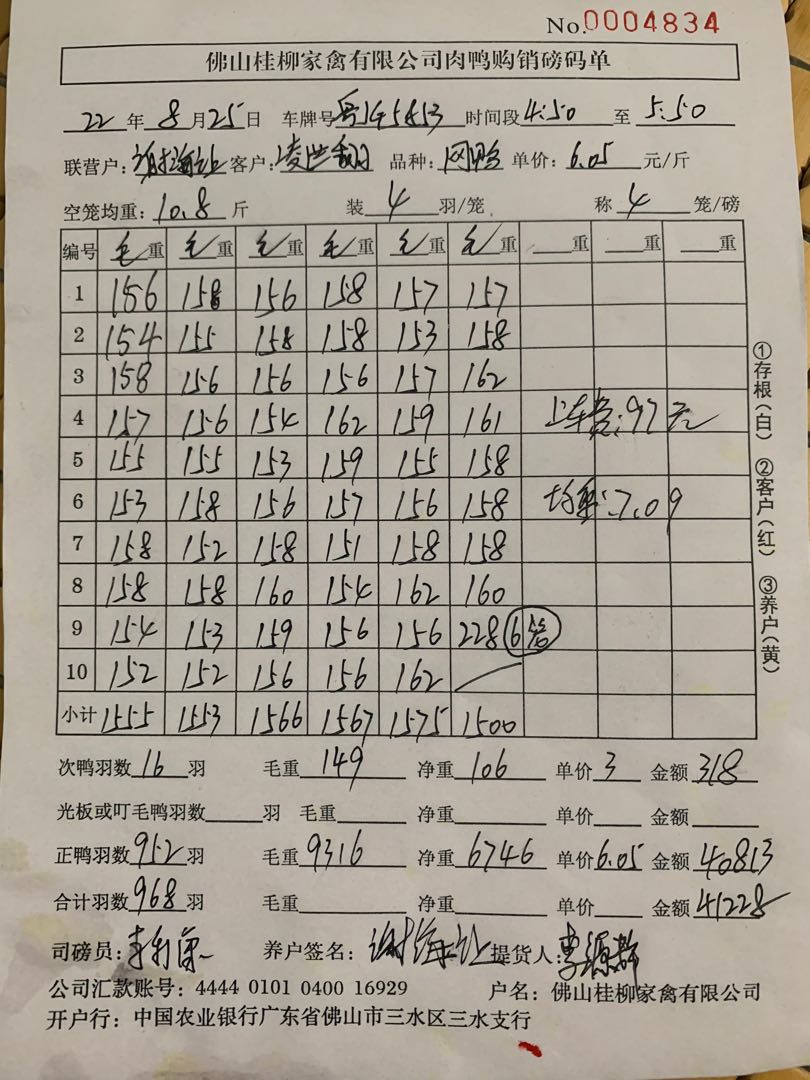 No.0004834
佛山桂柳家禽有限公司肉鸭购销磅码单
22年8月25日 车牌号粤 时间段4:50至5:50
联营户: 客户: 品种: 单价:6.05元/斤
空笼均重:10.8斤 装4羽/笼 称4笼/磅
编号 毛重 毛重 毛重 毛重 毛重 毛重 重 重 重
1 156 158 156 158 157 157
2 154 155 158 158 153 158
3 158 156 156 156 157 162
4 157 156 154 162 159 161 上车费:97元
5 155 155 153 159 155 158
6 153 158 156 157 156 158 均重:7.09
7 158 152 158 151 158 158
8 158 158 160 154 162 160
9 154 153 159 156 156 228 6笼
10 152 152 156 156 162
小计 1555 1553 1566 1567 1575 1500
①存根(白) ②客户(红) ③养户(黄)
次鸭羽数16羽 毛重149 净重106 单价3 金额318
光板或叮毛鸭羽数 羽 毛重 净重 单价 金额
正鸭羽数952羽 毛重9316 净重6746 单价6.05 金额40813
合计羽数968羽 毛重 净重 单价 金额41228
司磅员: 养户签名: 提货人:
公司汇款账号:4444 0101 0400 16929 户名:佛山桂柳家禽有限公司
开户行:中国农业银行广东省佛山市三水区三水支行